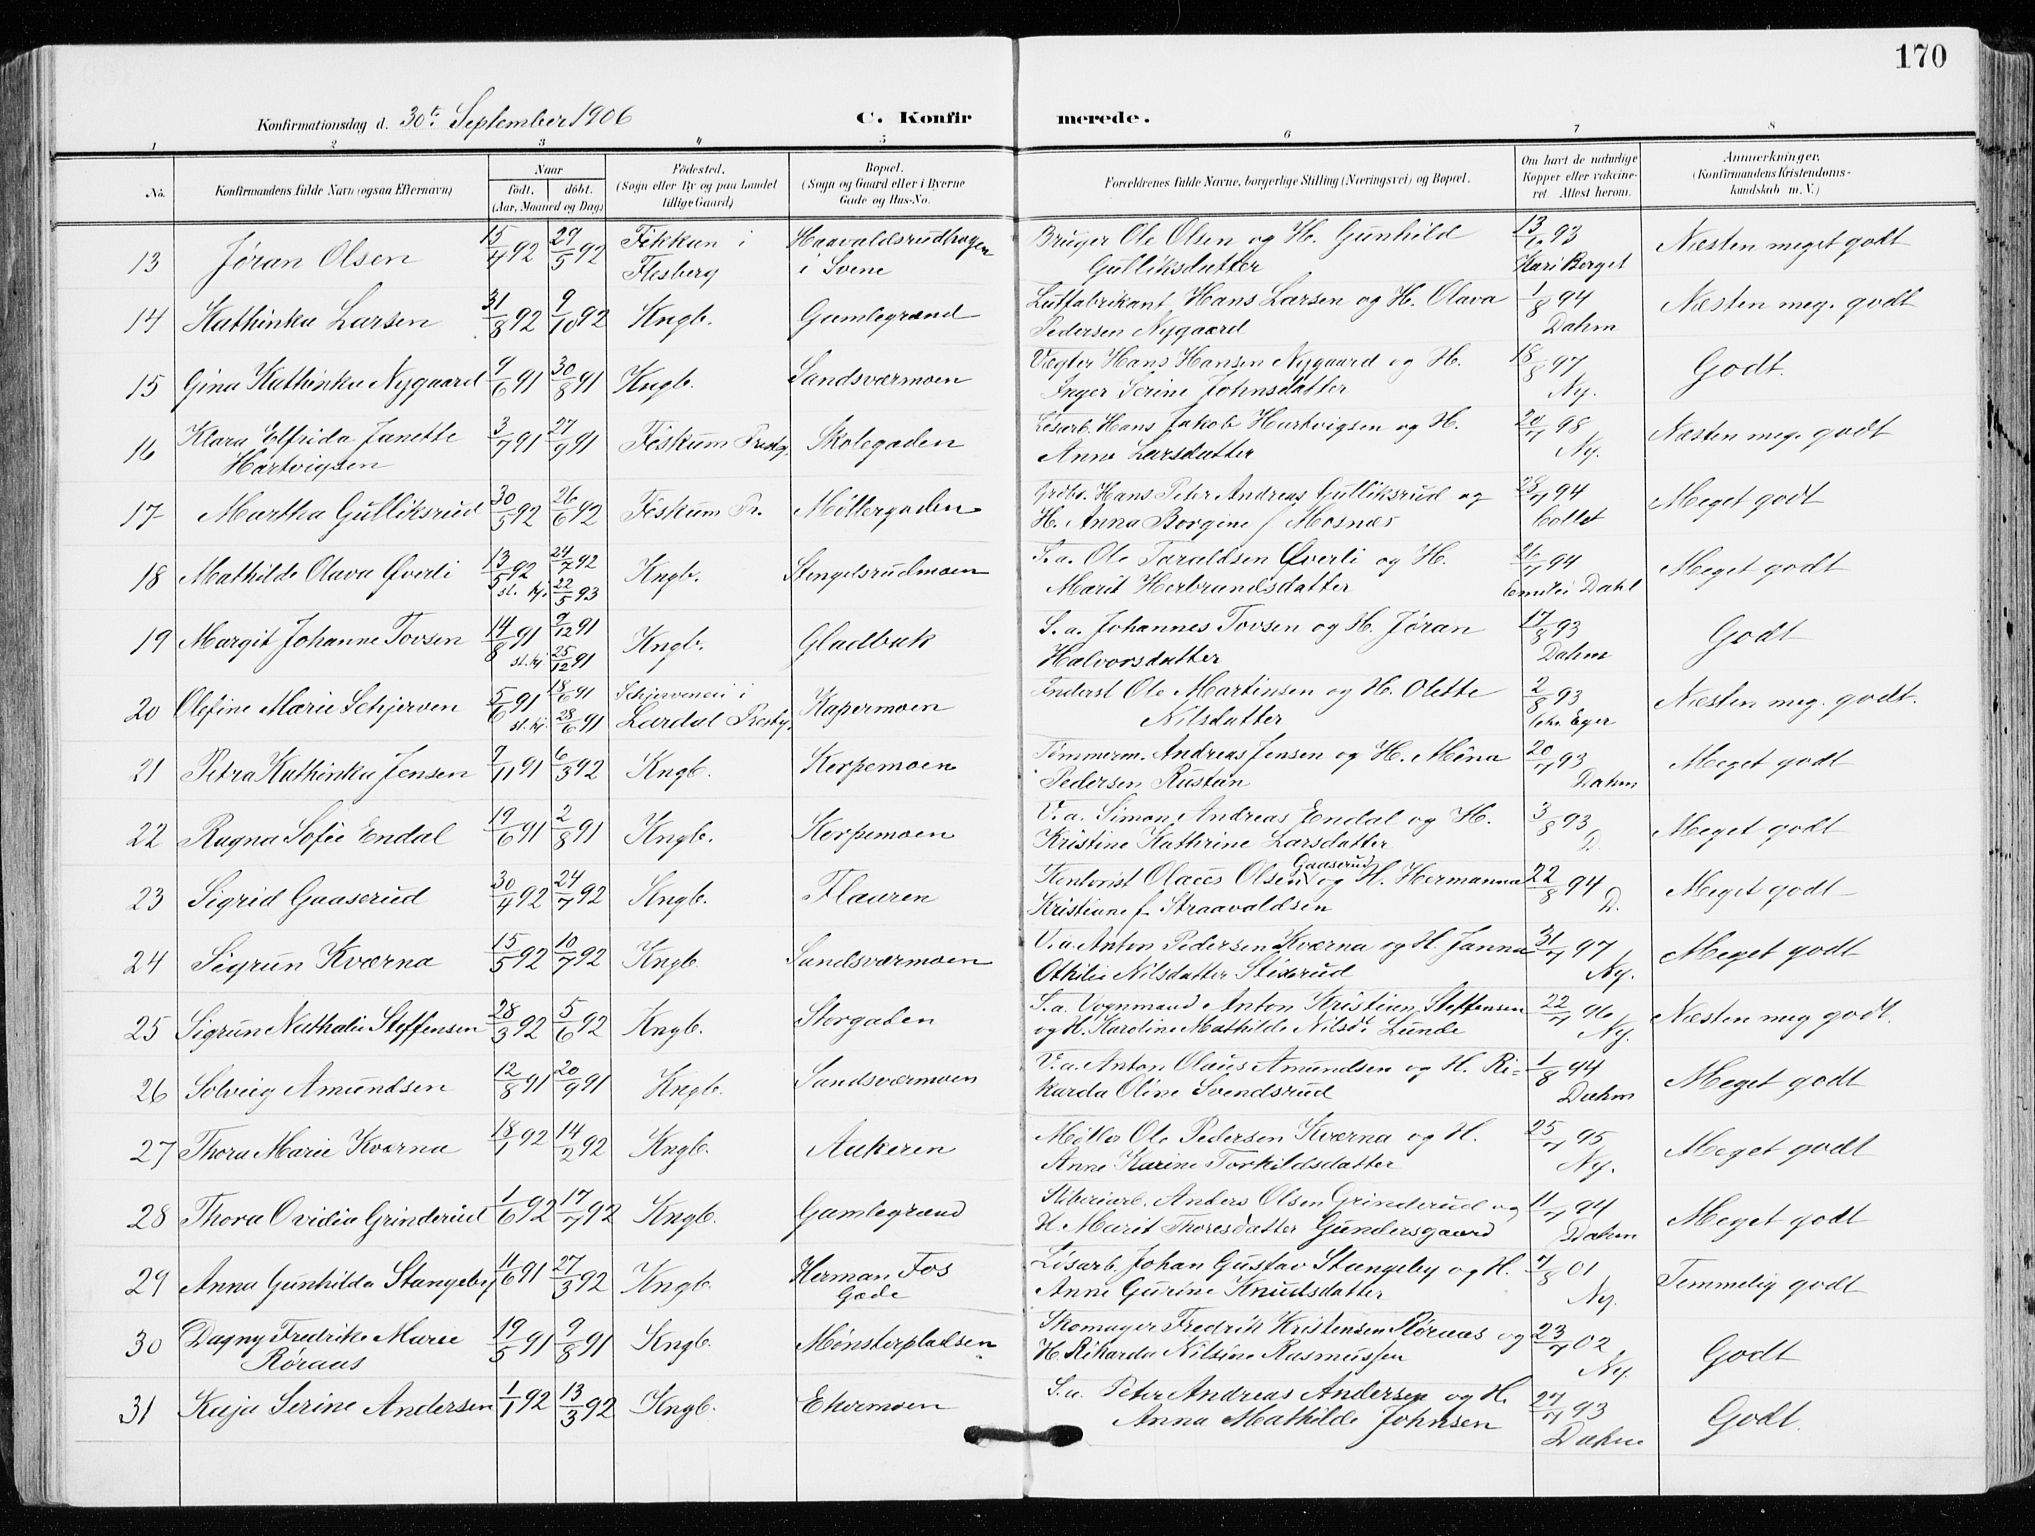 170
Konfirmationsdag d. 30te September 1906 C. Konfirmerede.
1 2 3 4 5 6 7 8
No. Konfirmandens fulde Navn (ogsaa Efternavn) Naar födt. döbt. (Aar, Maaned og Dag) Födested. (Sogn eller By og paa Landet tillige Gaard) Bopæl. (Sogn og Gaard eller i Byerne Gade og Hus-No. Forældrenes fulde Navne, borgerlige Stilling (Næringsvei) og Bopæl. Om havt de naturlige Kopper eller vakcineret. Attest herom. Anmerkninger. (Konfirmandens Kristendomskundskab m. V.)
13 Jøran Olsen 15/4 92 29/5 92 i Flesberg i Svene Bruger Ole Olsen og H. Gunhild Gulliksdatter 93 Kari Berget Næsten meget godt
14 Kathinka Larsen 31/8 92 9/10 92 Kngb. Gamlegrænd Lutfabrikant Hans Larsen og H. Olava Pedersen Nygaard 1/8 94 Dahm Næsten meg. godt
15 Gina Kathinka Nygaard 9/6 91 30/8 91 Kngb. Sandsværmoen Vægter Hans Hansen Nygaard og H. Inger Serine Johnsdatter 18/8 97 Ny. Godt.
16 Klara Elfrida Janette Hartvigsen 3/7 91 27/9 91 Fiskum Prestg. Skolegaden Løsarb. Hans Jakob Hartvigsen og H. Anne Larsdatter 20/7 98 Ny. Næsten meg. godt
17 Martha Gulliksrud 30/5 92 26/6 92 Fiskum Pr. Møllergaden Hans Peter Andreas Gulliksrud og H. Anna Borgine f Mosnæs 23/7 94 Collet Meget godt
18 Mathilde Olava Øverli 13/5 92 24/7 92 st. kj. 22/5 93 Kngb. Stengelsrudmoen S.a. Ole Taraldsen Øverli og H. Marit Herbrandsdatter 26/7 94 Emilie Dahl Meget godt
19 Margit Johanne Tovsen 14/8 91 9/12 91 st. kj 25/12 91 Kngb. Gladbak S.a. Johannes Tovsen og H. Jøran Halvorsdatter 17/8 93 Dahm Godt
20 Olefine Marie Schjerven 5/6 91 18/6 91 st. kj. 28/6 91 i Lardal Prestg. Kapermoen Inderst Ole Martinsen og H. Olette Nilsdatter 2/8 93 Eger Næsten meg. godt.
21 Petra Kathinka Jensen 7/11 91 6/3 92 Kngb. Korpemoen Tømmerm. Andreas Jensen og H. Mina Pedersen Rustan 20/7 93 Dahm Meget godt
22 Ragna Sofie Endal 19/6 91 2/8 91 Kngb. Korpemoen V.a. Simon Andreas Endal og H. Kristine Kathrine Larsdatter 3/8 93 D. Meget godt
23 Sigrid Gaaserud 30/4 92 24/7 92 Kngb. Flaaren Kontorist Olaus Olsen Gaaserud og H. Hermanna Kristiane f Straavaldsen 22/8 94 D. Meget godt
24 Sigrun Kværna 15/5 92 10/7 92 Kngb. Sandsværmoen V.a. Anton Pedersen Kværna og H. Janna Othilie Nilsdatter Stixrud 31/7 97 Ny. Meget godt
25 Sigrun Nathalie Steffensen 28/3 92 5/6 92 Kngb. Storgaden S.a. Vognmand Anton Kristian Steffensen og H. Karoline Mathilde Nilsd. Lunde 22/7 96 Ny. Næsten meg godt.
26 Solveig Amundsen 12/8 91 20/9 91 Kngb. Sandsværmoen V.a. Anton Olaus Amundsen og H. Rikarda Oline Svendsrud 1/8 94 Dahm Meget godt
27 Thora Marie Kværna 18/1 92 14/2 92 Kngb. Aakeren Møller Ole Pedersen Kværna og H. Anne Karine Torkildsdatter 25/7 95 Ny. Meget godt
28 Thora Ovidia Grinderud 1/6 92 17/7 92 Kngb. Gamlegrænd Sliberiarb. Anders Olsen Grinderud og H. Marit Thoresdatter Gundersgaard 11/7 94 Dahm Meget godt
29 Anna Gunhilda Stangeby 11/6 91 27/3 92 Kngb. Herman Fos Gade Løsarb. Johan Gustav Stangeby og H. Anne Gurine Knudsdatter 7/8 01 Ny. Temmelig godt
30 Dagny Fredrikke Marie Røraas 19/5 91 9/8 91 Kngb. Mønsterpladsen Skomager Fredrik Kristensen Røraas og H. Rikarda Nilsine Rasmussen 23/7 02 Ny. Godt
31 Kaja Serine Andersen 1/1 92 13/3 92 Kngb. Ekermoen S.a. Peter Andreas Andersen og H. Anna Mathilde Johnsen 27/7 93 Dahm Godt.